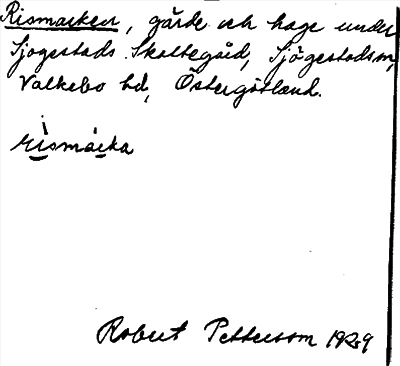 Rismarken, gärde och hage under
Sjögestads Skattegård, Sjögestads sn,
Valkebo hd, Östergötland.
rismarka
Robert Pettersson 1929